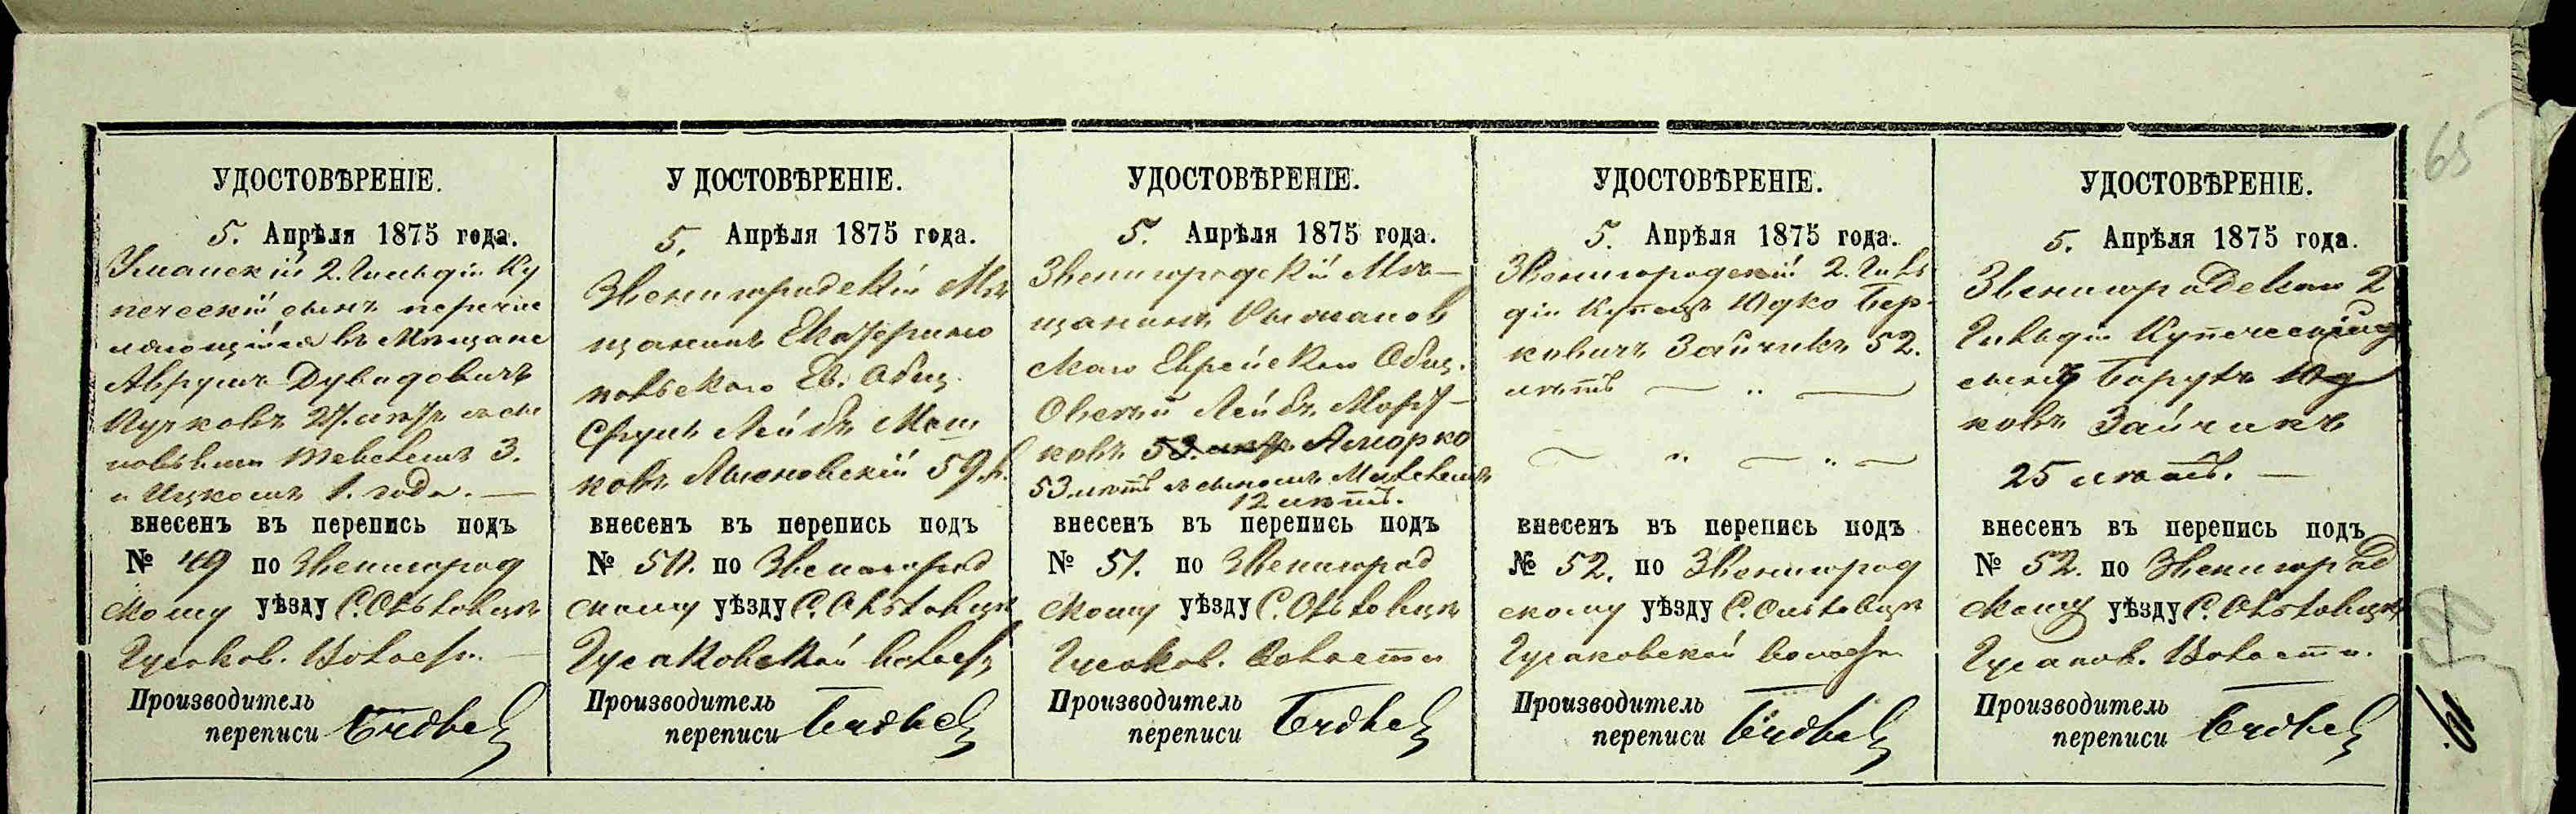 УДОСТОВѢРЕНІЕ.
5. Апрѣля 1875 года.
Уманскій 2. Гильдіи Ку
печескій сынъ перечис
ляющійся въ Мѣщане
Аврумъ Дувидовичъ
Кучковъ 27. лѣтъ съ сы
новьями 3.
и Ицкомъ 1. года. —
внесенъ въ перепись подъ
№ 49 по Звенигород
скому уѣзду С. Ольховцѣ
Гусаков. Волости.
Производитель
переписи
УДОСТОВѢРЕНІЕ.
5. Апрѣля 1875 года.
Звенигородскій Мѣ
щанинъ Екатерино
польскаго Ев. Общ.
Сруль Лейбъ Мош
ковъ 59 л.
внесенъ въ перепись подъ
№ 50. по Звенигород
скому уѣзду С. Ольховцѣ
Гусаковской волости
Производитель
переписи
УДОСТОВѢРЕНІЕ.
5. Апрѣля 1875 года.
Звенигородскій Мѣ—
щанинъ
скаго Еврейскаго Общ.
Овсей Лейбъ Морт—
ковъ 53. лѣтъ
53 лѣтъ съ сыномъ
12 лѣтъ.
внесенъ въ перепись подъ
№ 51. по Звенигород
скому уѣзду С. Ольховцѣ
Гусаков. Волости
Производитель
переписи
УДОСТОВѢРЕНІЕ.
5. Апрѣля 1875 года.
Звенигородскій 2. Гиль
діи Купецъ Юдко Бер-
ковичъ Зайчикъ 52.
лѣтъ — " —
— " — " —
внесенъ въ перепись подъ
№ 52. по Звенигород
скому уѣзду С. Ольховцѣ
Гусаковской волости
Производитель
переписи
УДОСТОВѢРЕНІЕ.
5. Апрѣля 1875 года.
Звенигородскаго 2
Гильдіи Купеческій
сынъ Барухъ Юд
ковъ Зайчикъ
25 лѣтъ. —
внесенъ въ перепись подъ
№ 52. по Звенигород
скому уѣзду С. Ольховцѣ
Гусаков. Волости.
Производитель
переписи
65